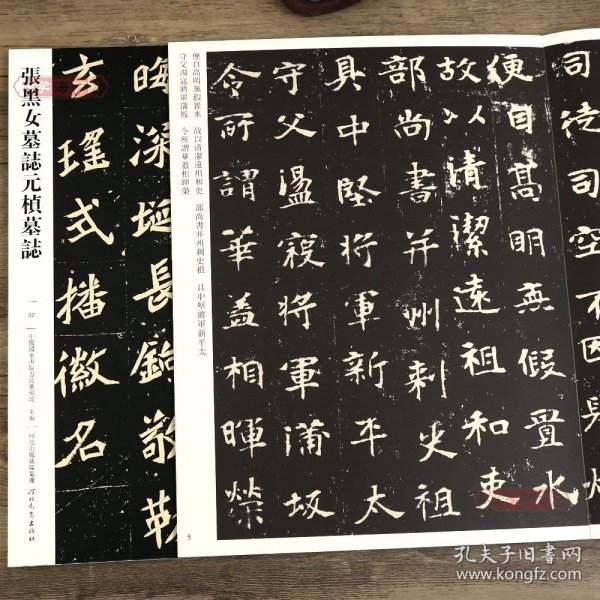 張黑女墓誌元楨墓誌
32
主編
河北出版傳媒集團
河北教育出版社
晦深埏長鐍敬勒
玄瑤式播徽名
司徒司空不因
便自高明無假置水
故以清潔遠祖和吏
部尚書并州刺史祖
具中堅將軍新平太
守父盪寇將軍蒲坂
令所謂華蓋相暉榮
便自高明無假置水 故以清潔遠祖和吏 部尚書并州刺史祖 具中堅將軍新平太
守父盪寇將軍蒲坂 令所謂華蓋相暉榮
5
孔夫子旧书网
www.kongfz.com